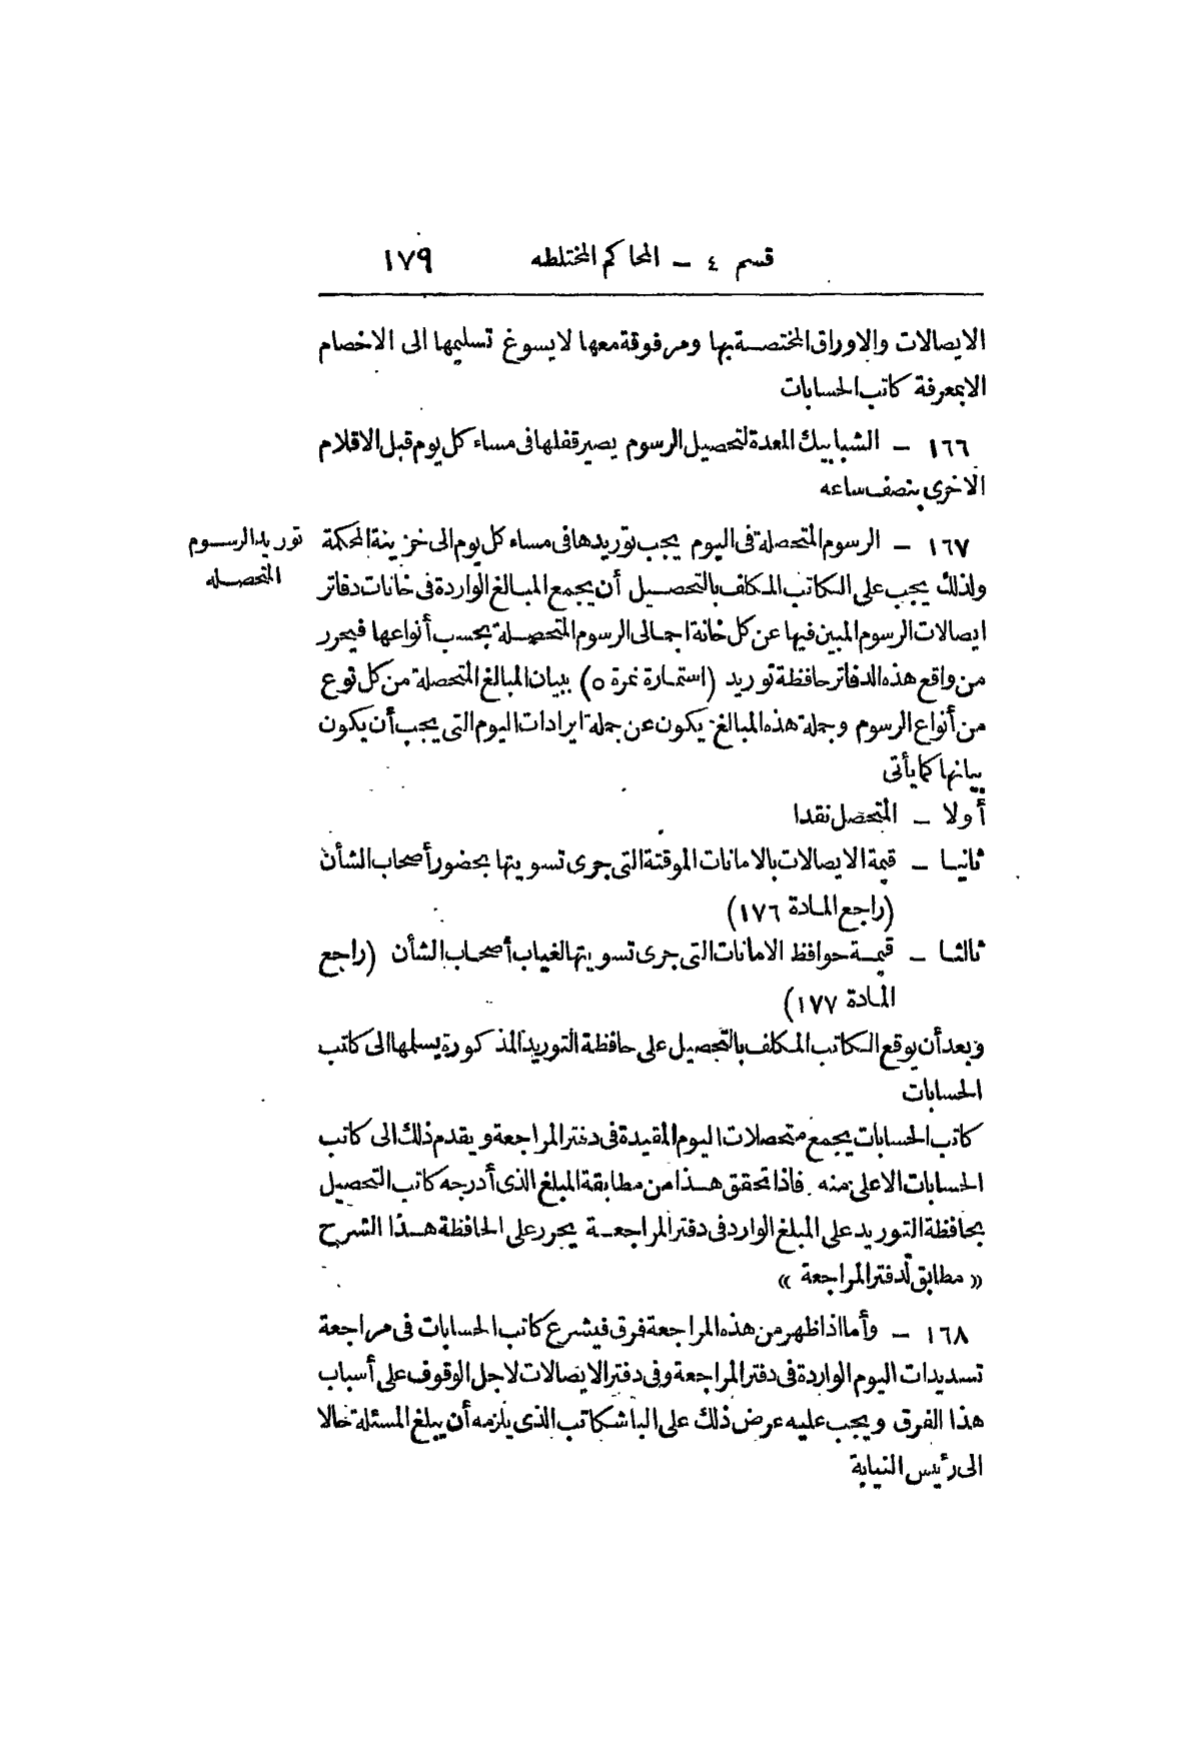 قسم ٤ — المحاكم المختلطه ١٧٩
الايصالات والاوراق المختصة بها ومرفوقة معها لايسوغ تسليمها الى الاخصام
الابمعرفة كاتب الحسابات
١٦٦ — الشبابيك المعدة لتحصيل الرسوم يصير قفلها فى مساء كل يوم قبل الاقلام
الاخرى بنصف ساعه
١٦٧ — الرسوم المتحصلة فى اليوم يجب توريدها فى مساء كل يوم الى خزينة المحكمة
توريد الرسوم
المتحصله
ولذلك يجب على الكاتب المكلف بالتحصيل أن يجمع المبالغ الواردة فى خانات دفاتر
ايصالات الرسوم المبين فيها عن كل خانة اجمالى الرسوم المتحصلة بحسب أنواعها فيحرر
من واقع هذه الدفاتر حافظة توريد (استمارة نمرة ٥) ببيان المبالغ المتحصلة من كل نوع
من أنواع الرسوم وجملة هذه المبالغ يكون عن جملة ايرادات اليوم التى يجب أن يكون
بيانها كما يأتى
أولا — المتحصل نقدا
ثانيا — قيمة الايصالات بالامانات الموقتة التى جرى تسويتها بحضور أصحاب الشأن
(راجع المادة ١٧٦)
ثالثا — قيمة حوافظ الامانات التى جرى تسويتها لغياب أصحاب الشأن (راجع
المادة ١٧٧)
وبعد أن يوقع الكاتب المكلف بالتحصيل على حافظة التوريد المذكورة يسلمها الى كاتب
الحسابات
كاتب الحسابات يجمع متحصلات اليوم المقيدة فى دفتر المراجعة ويقدم ذلك الى كاتب
الحسابات الاعلى منه . فاذا تحقق هذا من مطابقة المبلغ الذى أدرجه كاتب التحصيل
بحافظة التوريد على المبلغ الوارد فى دفتر المراجعة يحرر على الحافظة هذا الشرح
« مطابق لدفتر المراجعة »
١٦٨ — وأما اذا ظهر من هذه المراجعة فرق فيشرع كاتب الحسابات فى مراجعة
تسديدات اليوم الواردة فى دفتر المراجعة وفى دفتر الايصالات لاجل الوقوف على أسباب
هذا الفرق ويجب عليه عرض ذلك على الباشكاتب الذى يلزمه أن يبلغ المسئلة حالا
الى رئيس النيابة